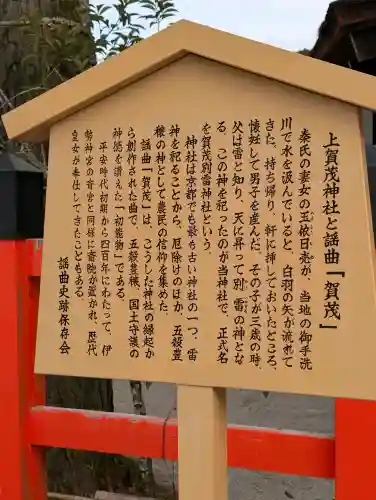 上賀茂神社と謡曲「賀茂」
秦氏の妻女の玉依日売が、当地の御手洗
川で水を汲んでいると、白羽の矢が流れて
きた。持ち帰り、軒に挿しておいたところ、
懐妊して男子を産んだ。その子が三歳の時、
父は雷と知り、天に昇って別雷の神とな
る。この神を祀ったのが当神社で、正式名
を賀茂別雷神社という。
神社は京都でも最も古い神社の一つ、雷
神を祀ることから、厄除けのほか、五穀豊
穣の神として農民の信仰を集めた。
謡曲「賀茂」は、こうした神社の縁起か
ら創作された曲で、五穀豊穣、国土守護の
神徳を讃えた「初能物」である。
平安時代初期から四百年にわたって、伊
勢神宮の斎宮と同様に斎院が置かれ、歴代
皇女が奉仕してきたこともある。
謡曲史跡保存会